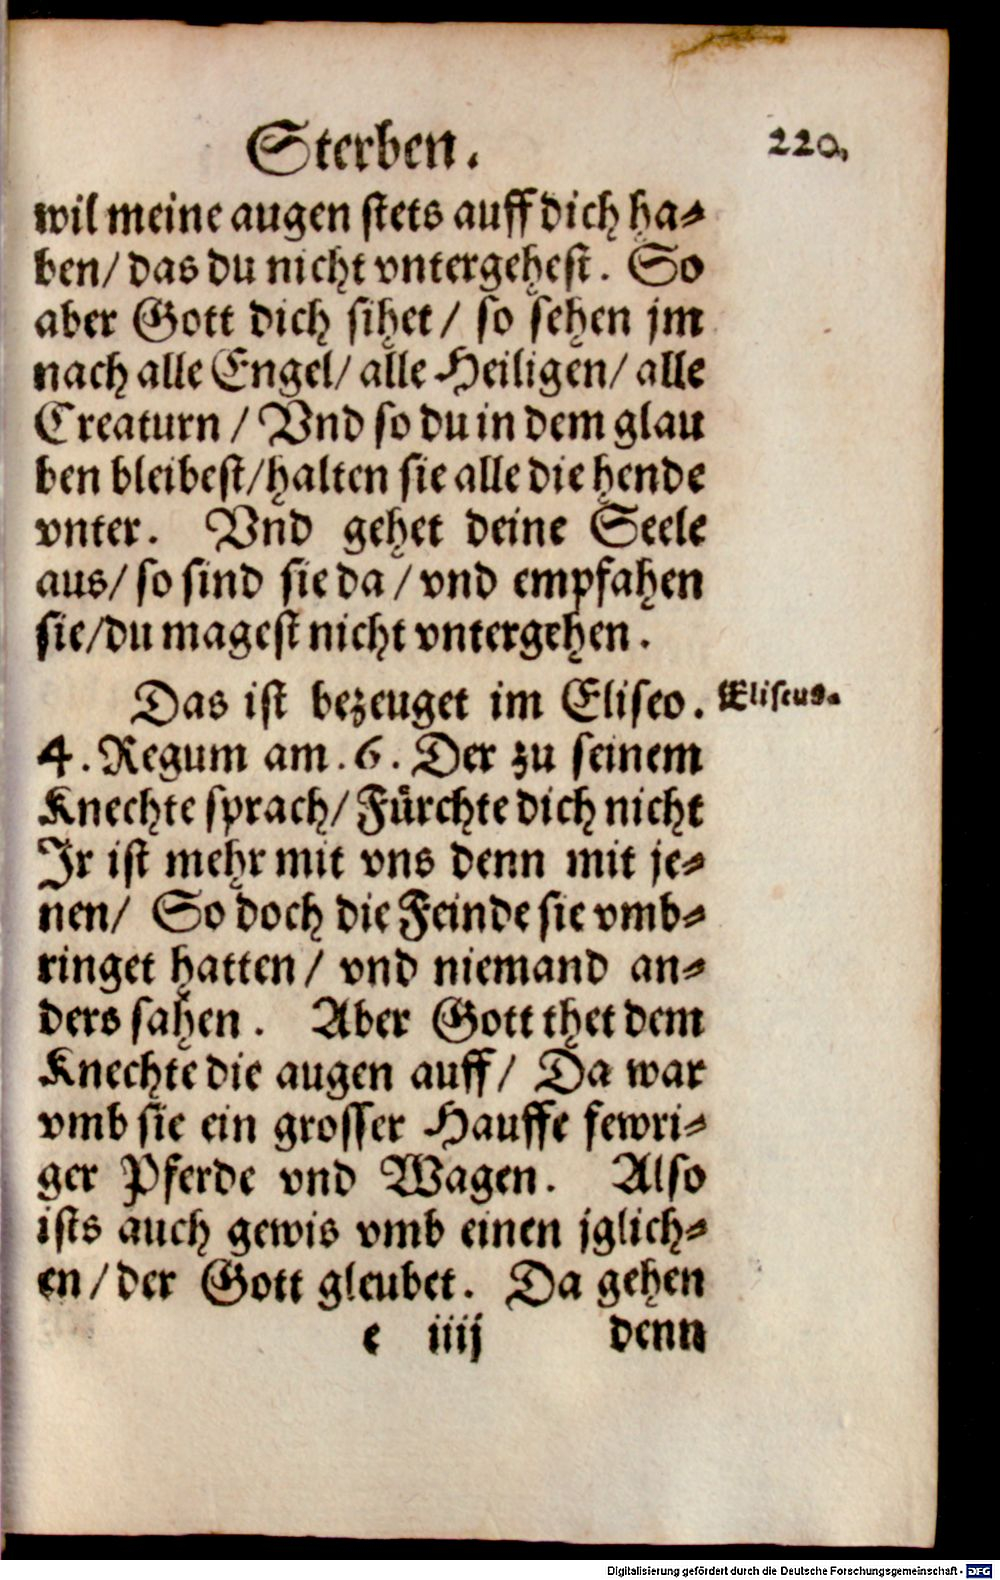 Sterben. 220.
wil meine augen stets auff dich ha⸗
ben/ das du nicht vntergehest. So
aber Gott dich sihet/ so sehen jm
nach alle Engel/ alle Heiligen/ alle
Creaturn/ Vnd so du in dem glau
ben bleibest/ halten sie alle die hende
vnter. Vnd gehet deine Seele
aus/ so sind sie da/ vnd empfahen
sie/ du magest nicht vntergehen.
Das ist bezeuget im Eliseo. Eliseus.
4. Regum am. 6. Der zu seinem
Knechte sprach/ Fürchte dich nicht
Jr ist mehr mit vns denn mit je⸗
nen/ So doch die Feinde sie vmb⸗
ringet hatten/ vnd niemand an⸗
ders sahen. Aber Gott thet dem
Knechte die augen auff/ Da war
vmb sie ein grosser Hauffe fewri⸗
ger Pferde vnd Wagen. Also
ists auch gewis vmb einen jglich⸗
en/ der Gott gleubet. Da gehen
e iiij denn
Digitalisierung gefördert durch die Deutsche Forschungsgemeinschaft - DFG